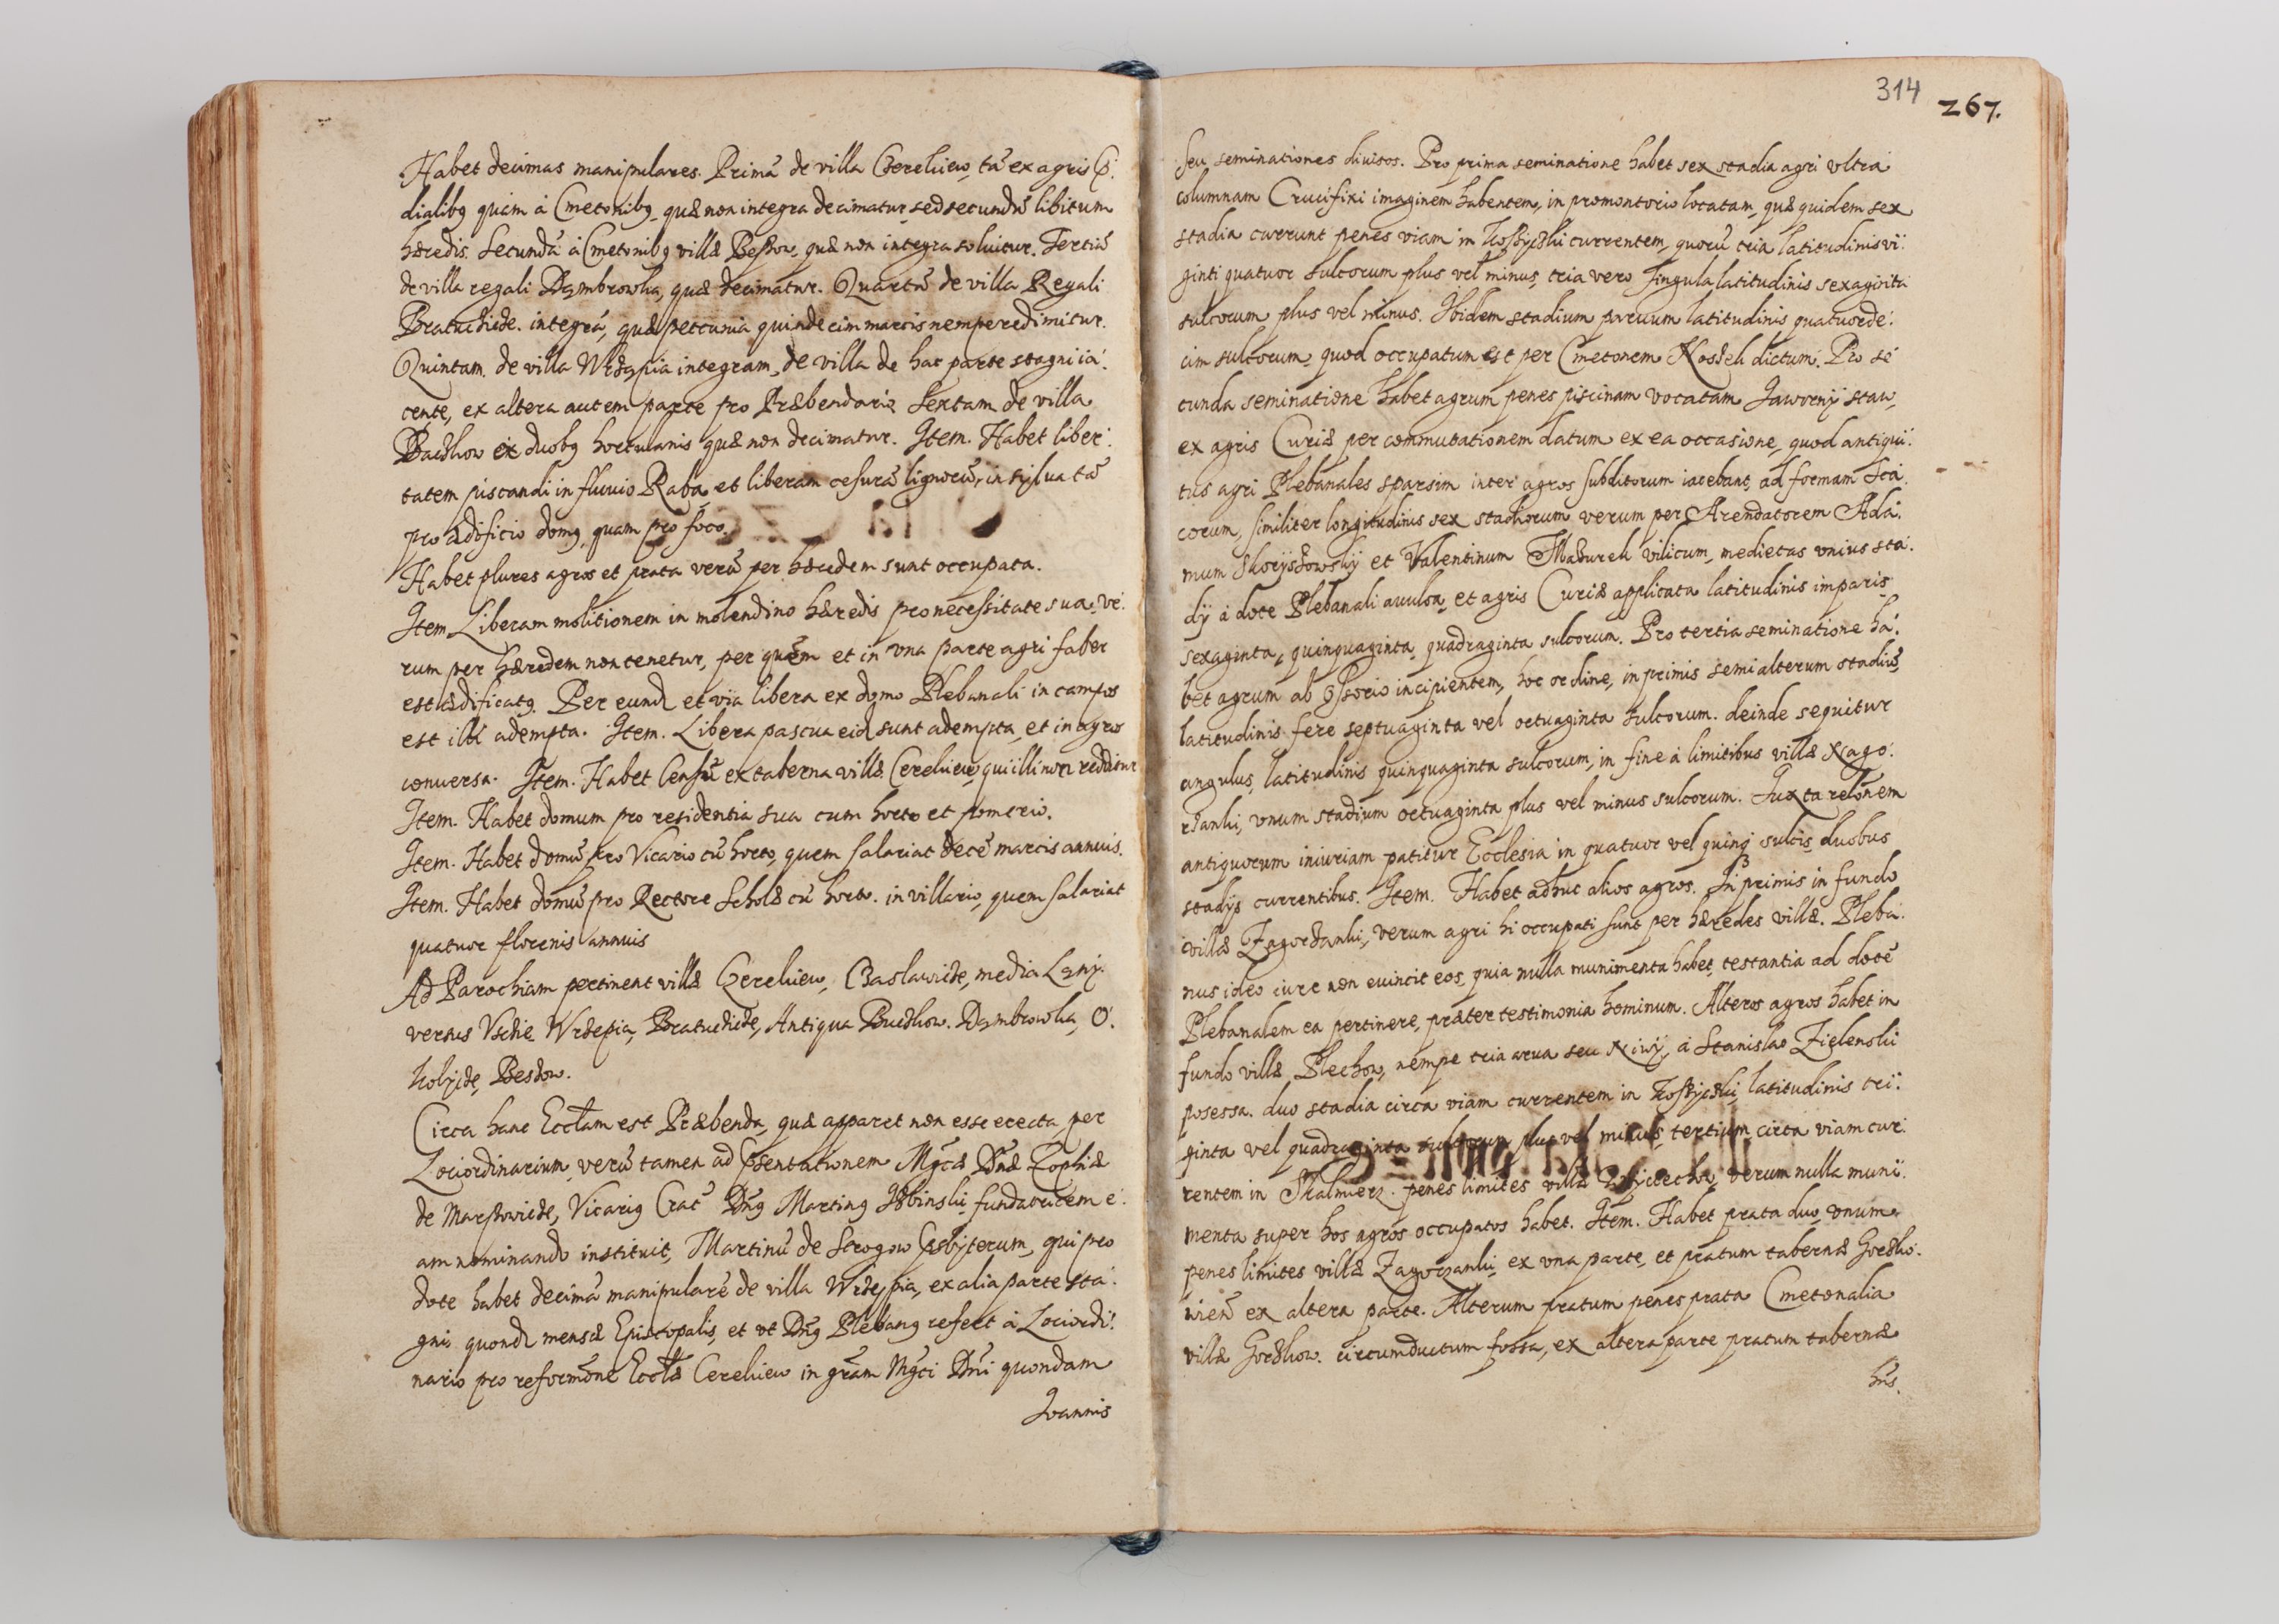 Habet decimas manipulares. Primã de villa Czerekiew, tã ex agris
dialibꝫ quàm à Cmetonibꝫ, quæ non integra decimatur, sed secundũ libitum
hæredis. Secundã à Cmetonibꝫ villæ Bessow, quæ non integra soluitur. Tertiã
de villa regali Dąmbrowka, quæ decimatur. Quartã de villa Regali
Bratuchicze. integrã, quæ peccunia quindecim marcis nempe redimitur.
Quintam. de villa Wrzępia integram, de villa de hac parte stagni ia:
cente, ex altera autem parte pro Præbendario. Sextam de villa
Buczkow ex duobꝫ hortulanis quæ non decimatur. Item. Habet liber:
tatem piscandi in fluuio Raba, et liberam cesurã lignorũ, in sylua tã
pro ædificio domꝫ, quam pro foco.
Habet plures agros et prata verũ per hæredem sunt occupata.
Item Liberam molitionem in molendino hæredis pro necessitate sua, ve:
rum per hæredem non tenetur, per quem et in vna parte agri faber
est ædificatꝫ. Per eund et via libera ex domo Plebanali in campos
est illi adempta. Item. Libera pascua eid sunt adempta, et in agros
conuersa. Item. Habet Censũ ex taberna villæ Cerekiew, qui illi non redditur
Item. Habet domum pro residentia sua cum horto et pomerio.
Item. Habet domũ pro Vicario cũ horto, quem salariat decẽ marcis annuis.
Item. Habet domũ pro Rectore Scholæ cũ horto. in villario, quem salariat
quatuor florenis annuis
Ad Parochiam pertinent villæ Czerekiew, Baslawicze, media Ląni.
versus Vscie. Wrzepia, Bratuchicze, Antiqua Buczkow. Dąmbrowka, O:
kolyicze, Beszow.
Circa hanc Ecclam est Præbenda, quæ apparet non esse erecta per
Lociordinarium, verũ tamen ad Psentationem Mgcæ Dnæ Zophiæ
de Marszowicze, Vicariꝫ Crac Dnꝫ Martinꝫ Izbinski fundatricem e:
am nominando instituit, Martinũ de Scrogow Psbyterum, qui pro
dote habet decimã manipularẽ de villa Wrzępia, ex alia parte sta:
gni quond mensæ Episcopalis, et vt Dnꝫ Plebanꝫ refert à Lociordi:
nario pro reformõne Eccliæ Cerekiew in grãm Mgci Dni quondam
Joannis
314
267.
seu seminationes diuisos. Pro prima seminatione habet sex stadia agri vltra
columnam Crucifixi imaginem habentem, in promontorio locatam, quæ quidem sex
stadia currunt penes viam in Koszyczki currentem, quorũ tria latitudinis vi:
ginti quatuor sulcorum plus vel minus, tria vero singula latitudinis sexaginta
sulcorum plus vel minus. Ibidem stadium paruum latitudinis quatuorde:
cim sulcorum, quod occupatum est per Cmetonem Koszek dictum. Pro se
cunda seminatione habet agrum penes piscinam vocatam Jaworny staw,
ex agris Curiæ per commutationem datum ex ea occasione, quod antiqui:
tus agri Plebanales sparsim inter agros subditorum iacebant, ad formam sca
corum, similiter longitudinis sex stadiorum verum per Arendatorem Ada:
mum Skoryszowsky et Valentinum Mazurek vilicum, medietas vnius sta:
dÿ à dote Plebanali auulsa, et agris Curiæ applicata latitudinis imparis
sexaginta, quinquaginta, quadraginta sulcorum. Pro tertia seminatione ha:
bet agrum ab incipientem, hoc ordine, in primis semialterum stadiũ,
latitudinis fere septuaginta vel octuaginta sulcorum. deinde sequitur
angulus, latitudinis quinquaginta sulcorum, in fine à limitibus villæ Xago:
rzanki, vnum stadium octuaginta plus vel minus sulcorum. Juxta relõnem
antiquorum iniuriam patitur Ecclesia in quatuor vel quinqꝫ sulcis duobus
stadÿs currentibus. Item. Habet adhuc alios agros. In primis in fundo
villæ Zagorzanki, verum agri hi occupati sunt per hæredes villæ. Pleba:
nus ideo iure non euincit eos, quia nulla munimenta habet, testantia ad dotẽ
Plebanalem ea pertinere, præter testimonia hominum. Alteros agros habet in
fundo villæ Plechow, nempe tria arua seu Niwy, à Stanislao Zielenski
posessa. duo stadia circa viam currentem in Koszyczki, latitudinis tri:
ginta vel quadraginta sulcorum plus vel minus, tertium circa viam cur:
rentem in Skalmierz. penes limites villæ Woyciecha, verum nulla muni:
menta super hos agros occupatos habet. Item. Habet prata duo, vnum
penes limites villæ Zagorzanki, ex vna parte, et pratum tabernæ Gorzko:
wien ex altera parte. Alterum pratum penes prata Cmetonalia
villæ Gorzkow. circumductum fossa, ex altera parte pratum tabernæ
hũs.